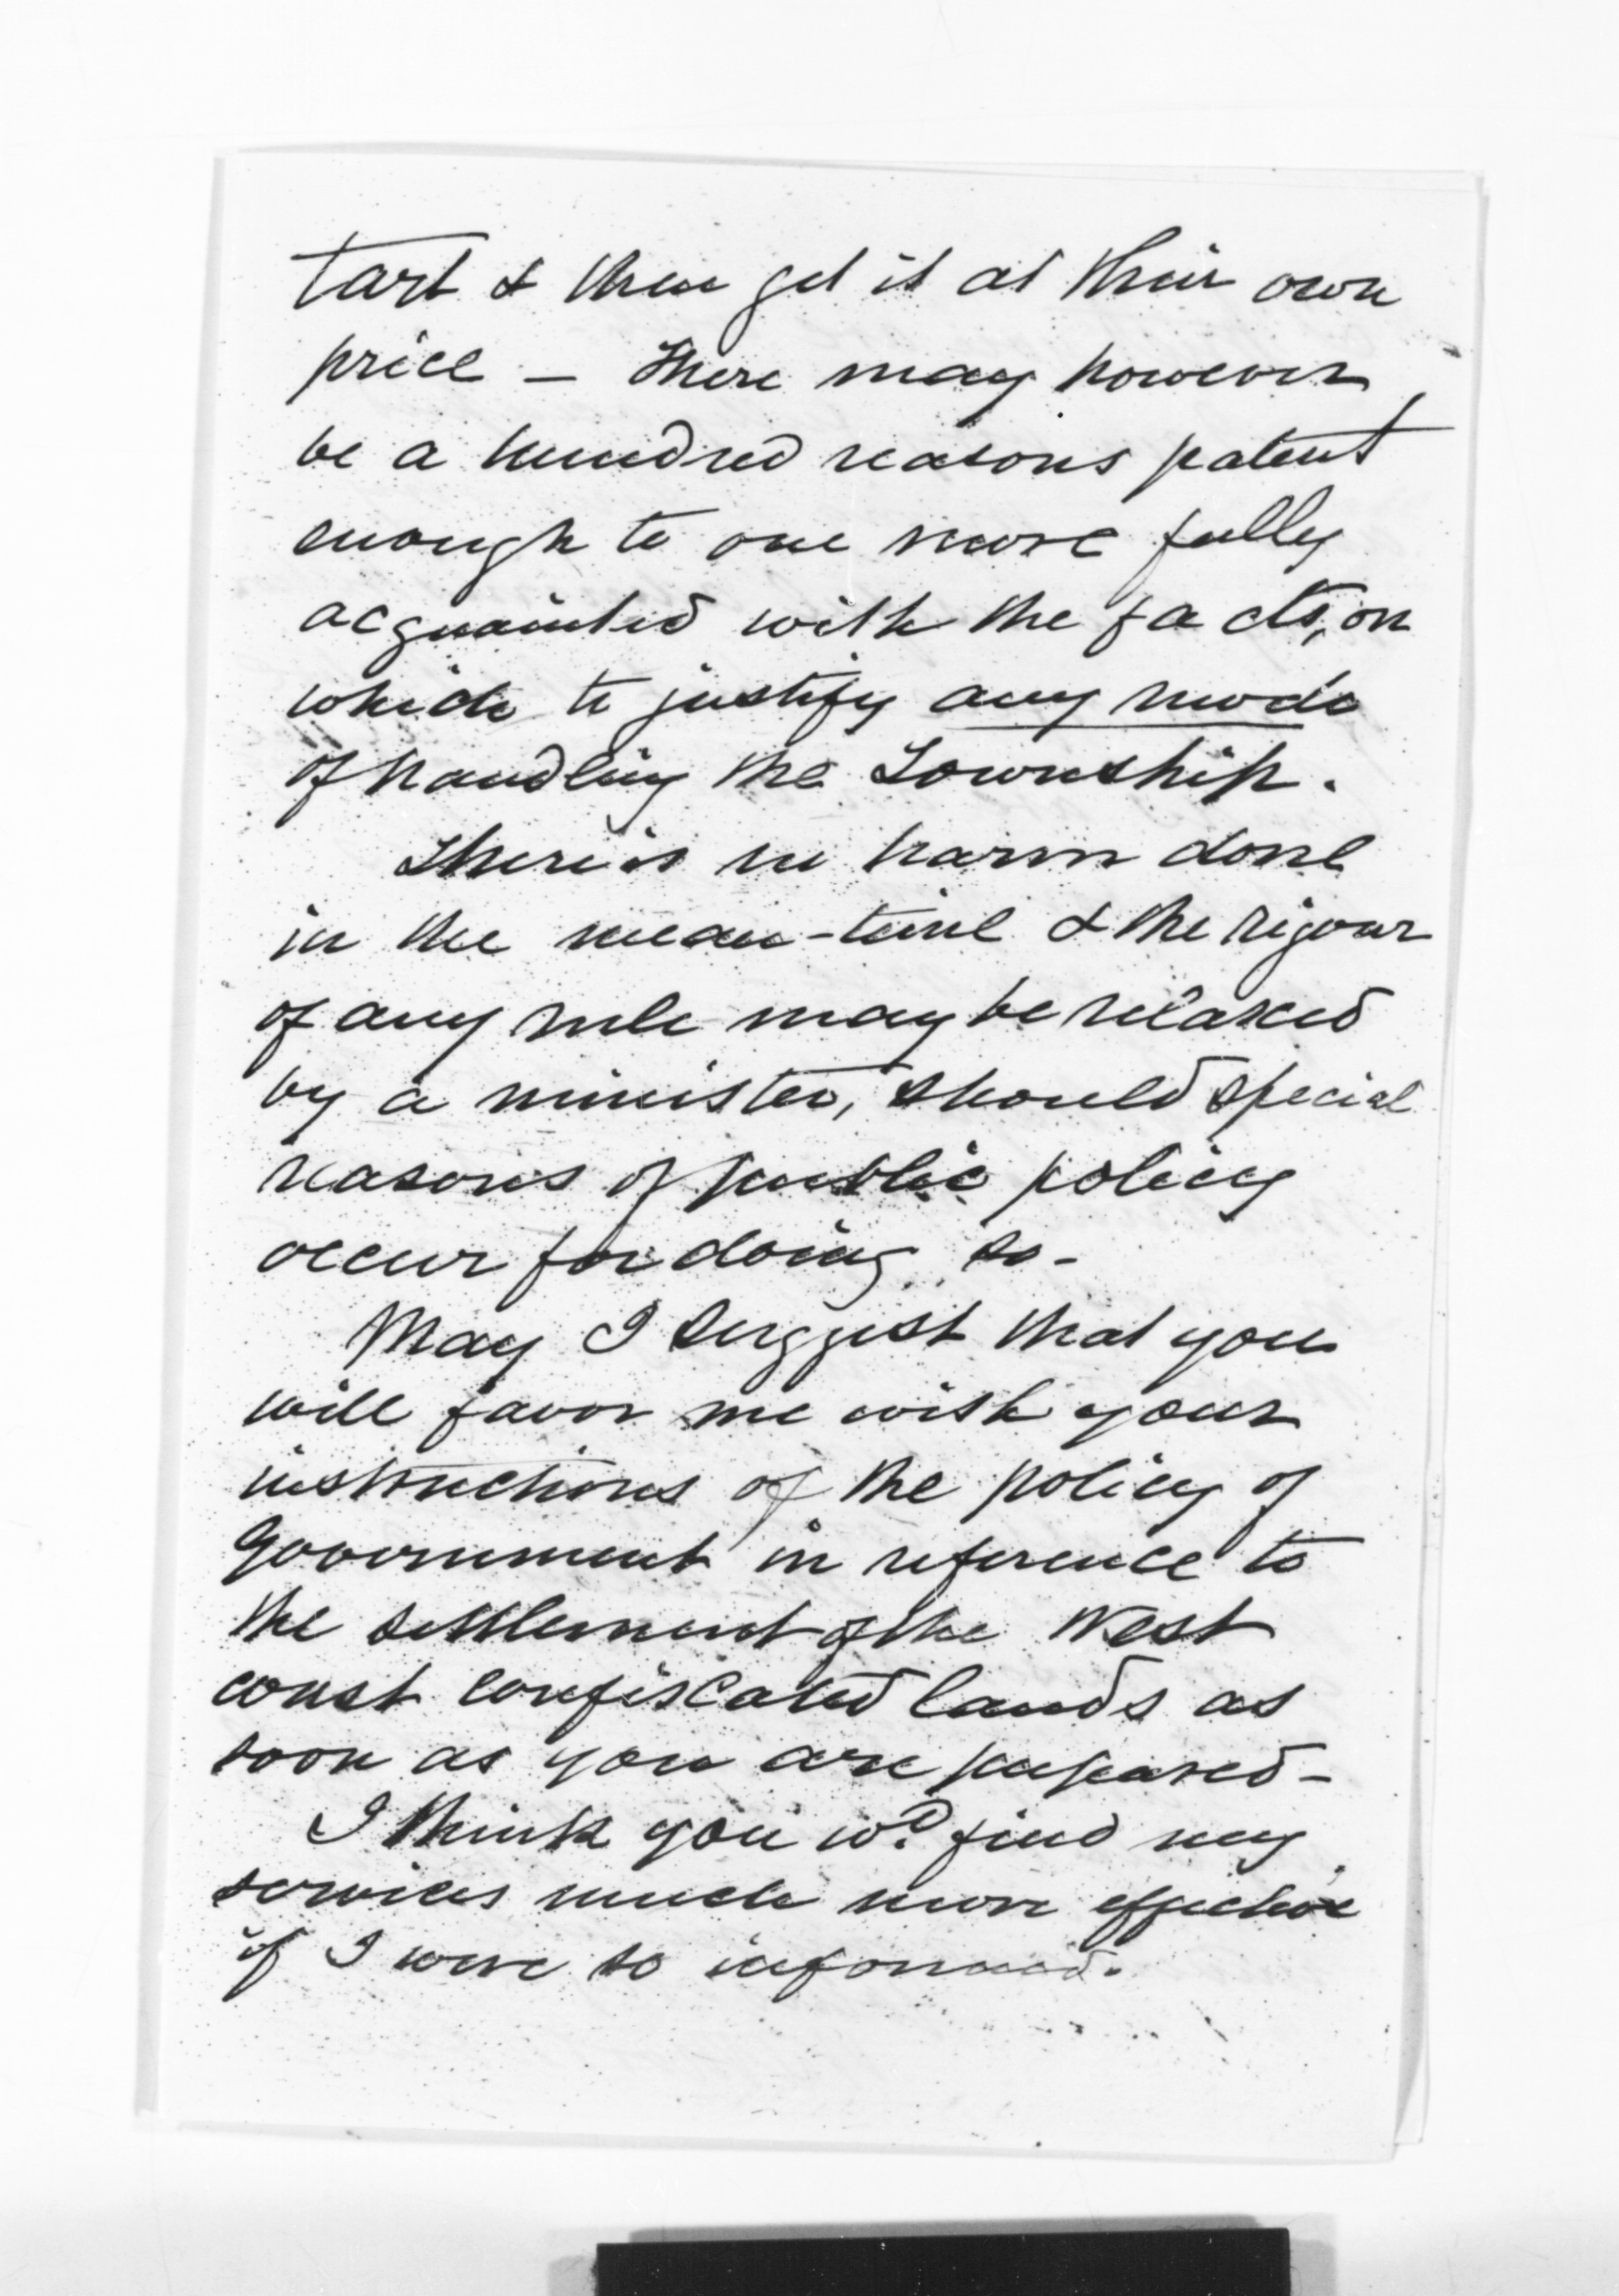 tart & then get it at their own
price — There may however,
be a hundred reasons patent
enough to one more fully
acquainted with the facts, on
which to justify any mode
of handling the Township.
There is no harm done
in the mean-time & the rigour
of any rule may be relaxed
by a minister, should special
reasons of public policy
occur for doing so -
May I suggest that you
will favor me with your
instructions of the policy of
Government in reference to
the settlement of the West
coast confiscated lands as
soon as you are prepared -
I think you wd. find my
services much more effective
if I were so informed.